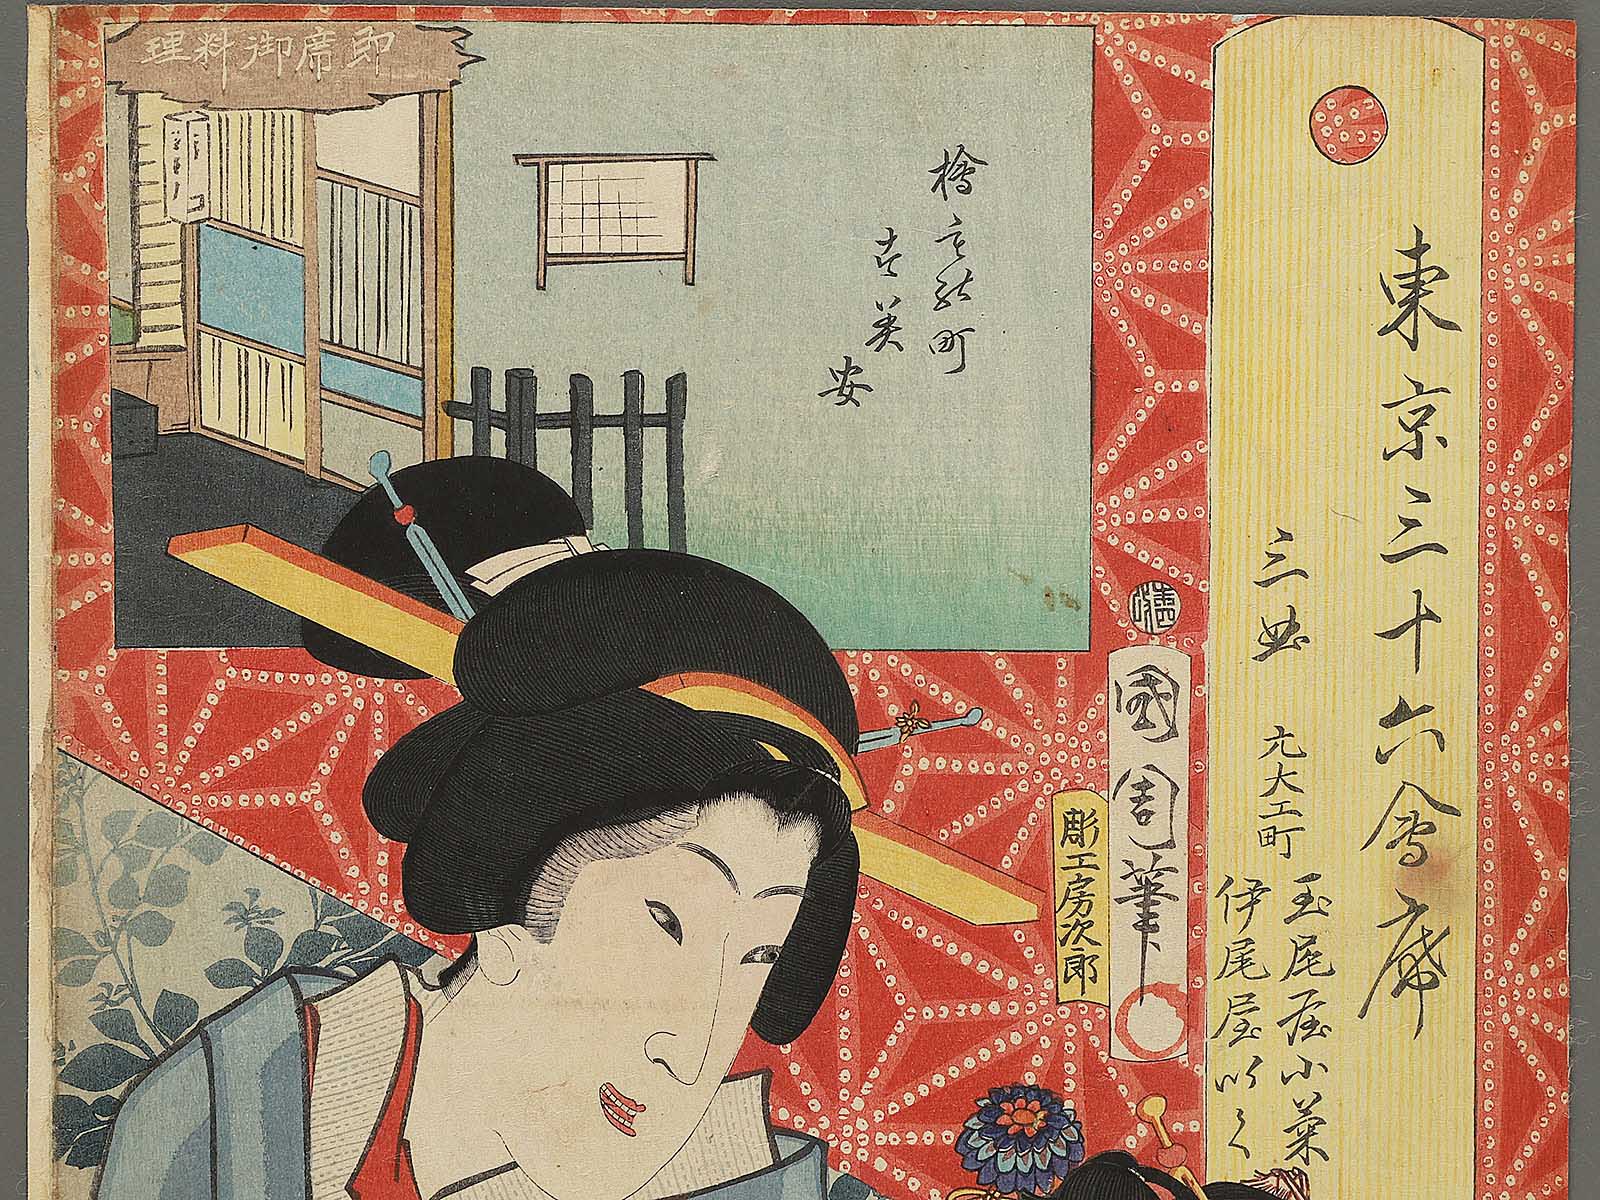 東京三十六會席
三曲
元大工町
玉尾屋小菊
伊尾屋いく
國周筆
彫工房次郎
檜もの町
安
即席御料理